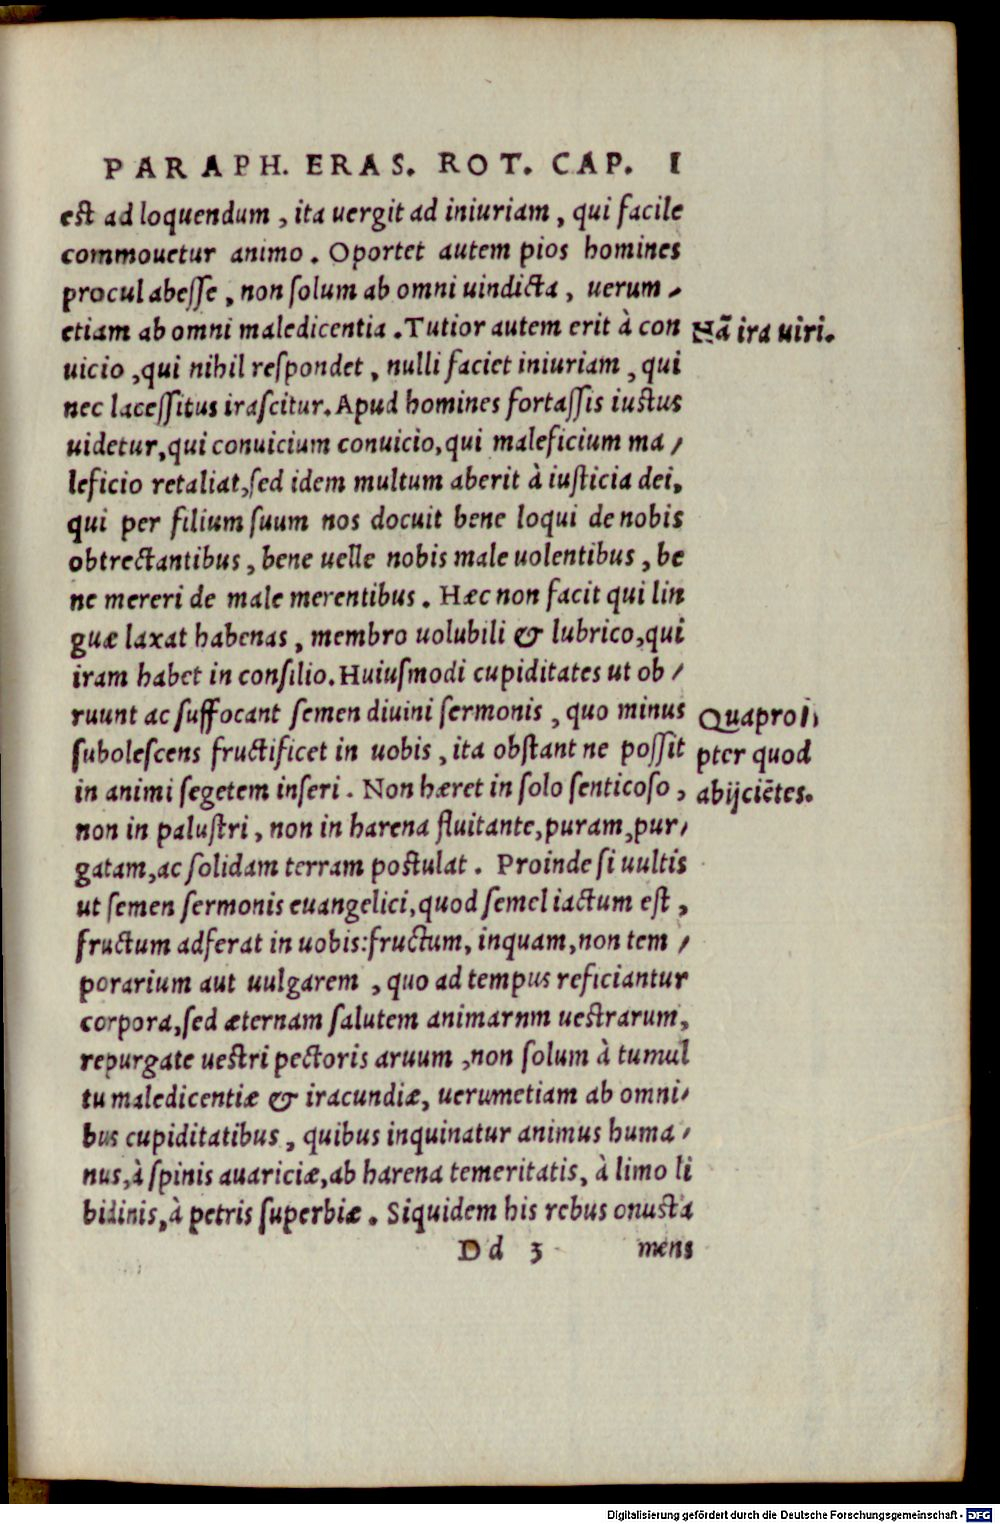 PARAPH. ERAS. ROT. CAP. I
est ad loquendum, ita uergit ad iniuriam, qui facile
commouetur animo. Oportet autem pios homines
procul abesse, non solum ab omni uindicta, uerum-
etiam ab omni maledicentia. Tutior autem erit à con
Nã ira uiri.
uicio, qui nihil respondet, nulli faciet iniuriam, qui
nec lacessitus irascitur. Apud homines fortassis iustus
uidetur, qui conuicium conuicio, qui maleficium ma/
leficio retaliat, sed idem multum aberit à iusticia dei,
qui per filium suum nos docuit bene loqui de nobis
obtrectantibus, bene uelle nobis male uolentibus, be
ne mereri de male merentibus. Hæc non facit qui lin
guæ laxat habenas, membro uolubili & lubrico, qui
iram habet in consilio. Huiusmodi cupiditates ut ob/
ruunt ac suffocant semen diuini sermonis, quo minus
Quapro
subolescens fructificet in uobis, ita obstant ne possit
pter quod
in animi segetem inseri. Non hæret in solo senticoso,
abijciẽtes.
non in palustri, non in harena fluitante, puram, pur/
gatam, ac solidam terram postulat. Proinde si uultis
ut semen sermonis euangelici, quod semel iactum est,
fructum adferat in uobis: fructum, inquam, non tem/
porarium aut uulgarem, quo ad tempus reficiantur
corpora, sed æternam salutem animarnm uestrarum,
repurgate uestri pectoris aruum, non solum à tumul
tu maledicentiæ & iracundiæ, uerumetiam ab omni/
bus cupiditatibus, quibus inquinatur animus huma/
nus, à spinis auariciæ, ab harena temeritatis, à limo li
bidinis, à petris superbiæ. Siquidem his rebus onusta
Dd 3 mens
Digitalisierung gefördert durch die Deutsche Forschungsgemeinschaft - DFG